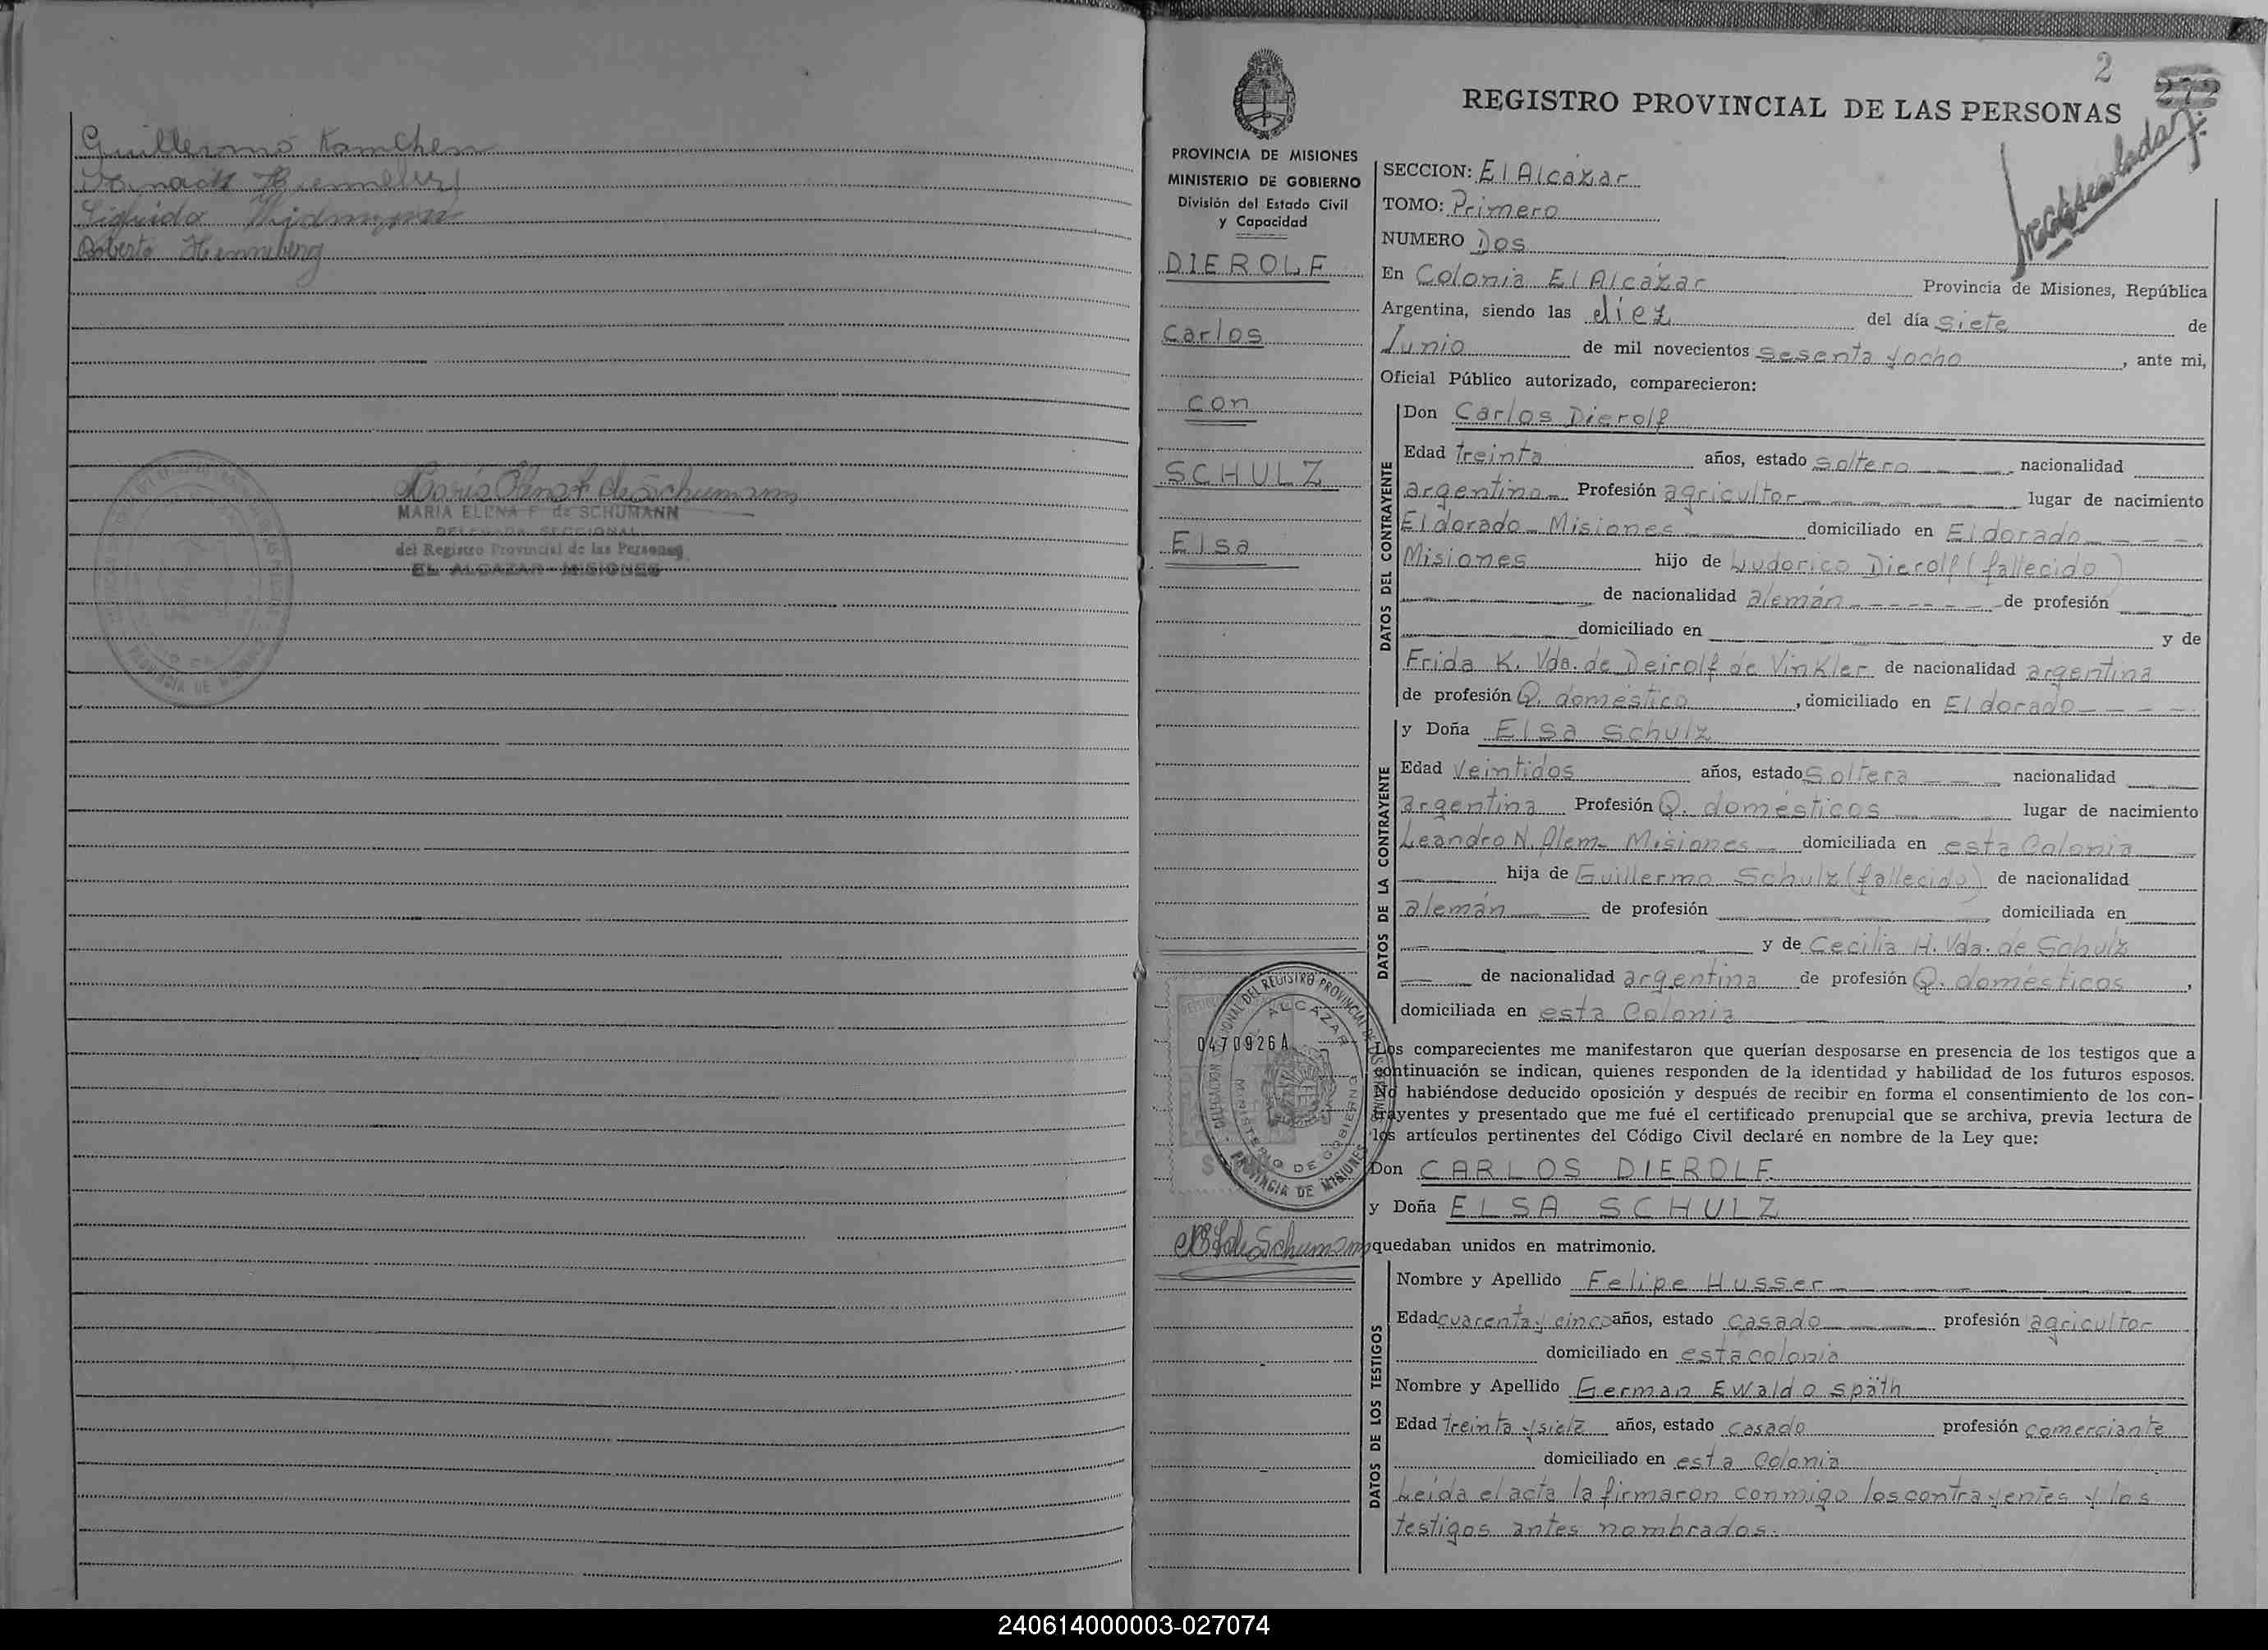 Guillermo Kamchen
Roberto Henneberg
María Elena F. de Schumann
MARIA ELENA F. de SCHUMANN
DELEGADA SECCIONAL
del Registro Provincial de las Personas
EL ALCAZAR - MISIONES
2
272
REGISTRO PROVINCIAL DE LAS PERSONAS
PROVINCIA DE MISIONES
MINISTERIO DE GOBIERNO
División del Estado Civil
y Capacidad
DIEROLF
Carlos
con
SCHULZ
Elsa
DELEGACION SECCIONAL DEL REGISTRO PROVINCIAL DE LAS PERSONAS
ALCAZAR
0470926A
MINISTERIO DE GOBIERNO
PROVINCIA DE MISIONES
SECCION: El Alcázar
TOMO: Primero
NUMERO Dos
En Colonia El Alcázar Provincia de Misiones, República
Argentina, siendo las diez del día siete de
Junio de mil novecientos sesenta y ocho, ante mi,
Oficial Público autorizado, comparecieron:
DATOS DEL CONTRAYENTE
Don Carlos Dierolf
Edad treinta años, estado soltero nacionalidad
argentino Profesión agricultor lugar de nacimiento
Eldorado - Misiones domiciliado en Eldorado
Misiones hijo de Ludorico Dierolf (fallecido)
de nacionalidad alemán de profesión
domiciliado en y de
Frida K. Vda. de Deirolf de Vinkler de nacionalidad argentina
de profesión Q. doméstico, domiciliado en Eldorado
DATOS DE LA CONTRAYENTE
y Doña Elsa Schulz
Edad Veintidos años, estado Soltera nacionalidad
argentina Profesión Q. domésticos lugar de nacimiento
Leandro N. Alem - Misiones domiciliada en esta Colonia
hija de Guillermo Schulz (fallecido) de nacionalidad
alemán de profesión domiciliada en
y de Cecilia H. Vda. de Schulz
de nacionalidad argentina de profesión Q. domésticos,
domiciliada en esta Colonia
Los comparecientes me manifestaron que querían desposarse en presencia de los testigos que a
continuación se indican, quienes responden de la identidad y habilidad de los futuros esposos.
No habiéndose deducido oposición y después de recibir en forma el consentimiento de los con-
trayentes y presentado que me fué el certificado prenupcial que se archiva, previa lectura de
los artículos pertinentes del Código Civil declaré en nombre de la Ley que:
Don CARLOS DIEROLF
y Doña ELSA SCHULZ
quedaban unidos en matrimonio.
DATOS DE LOS TESTIGOS
Nombre y Apellido Felipe Husser
Edad cuarenta y cinco años, estado casado profesión agricultor
domiciliado en esta colonia
Nombre y Apellido German Ewaldo Späth
Edad treinta y siete años, estado casado profesión comerciante
domiciliado en esta Colonia
Leída el acta la firmaron conmigo los contrayentes y los
testigos antes nombrados.
240614000003-027074